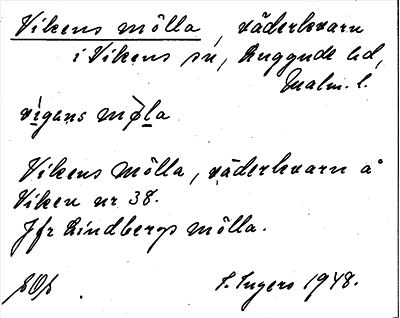 Vikens mölla, väderkvarn
i Vikens sn, Luggude hd,
Malm. l.
vigans møla
Vikens Mölla, väderkvarn å
Viken nr 38.
Jfr Lindbergs mölla.
S. Ingers 1948.